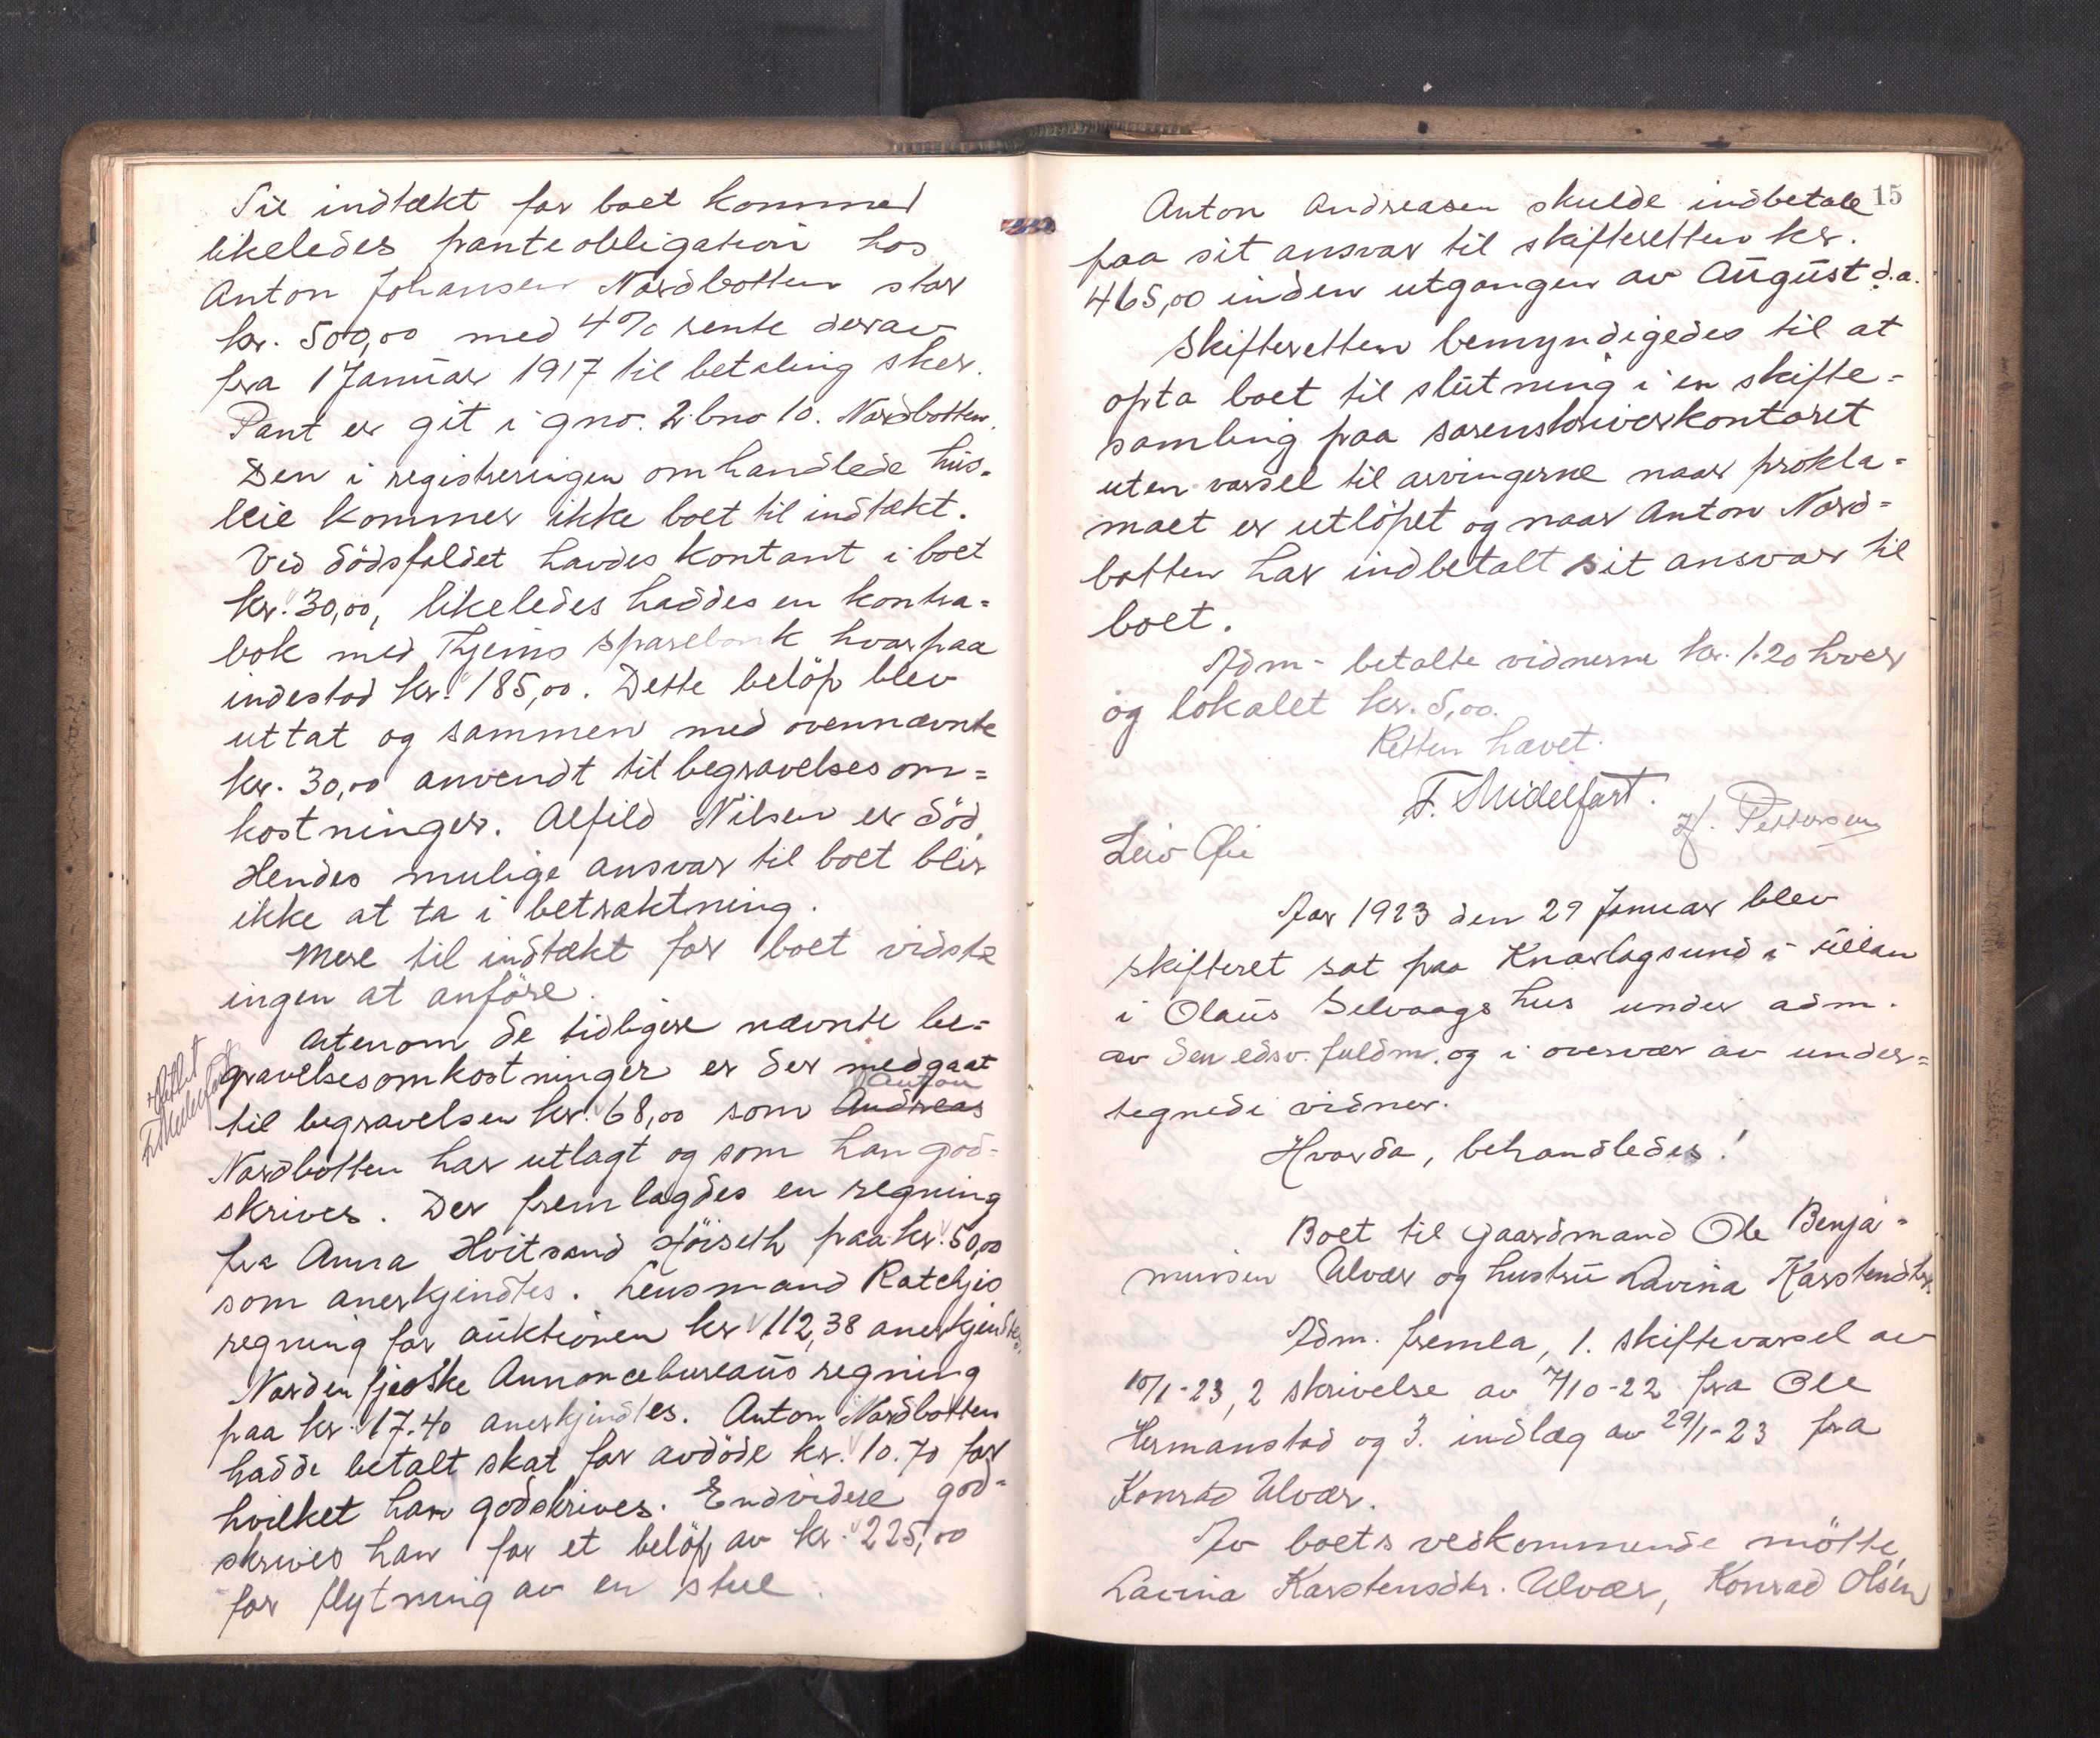 Til indtækt for boet kommer
likeledes panteobligation hos
Anton Johansen Nordbotten stor
kr. 500,00 med 4% rente derav
fra 1 Januar 1917 til betaling sker.
Pant er git i gno. 2 bno 10. Nordbotten.
Den i registreringen omhandlede hus-
leie kommer ikke boet til indtækt.
Ved dödsfaldet havdes kontant i boet
kr. 30,00, likeledes haddes en kontra=
bok med Hjems sparebank hvorpaa
indestod kr. 185,00. Dette belöp blev
uttat og sammen med ovennævnte
kr. 30,00 anvendt til begravelsesom=
kostninger. Alfild Nilsen er död.
Hendes mulige ansvar til boet blir
ikke at ta i betraktning.
Mere til indtækt for boet vidste
ingen at anföre.
Utenom de tidligere nævnte be=
gravelsesomkostninger er der medgaat
Anton
til begravelsen kr. 68,00 som Andreas
Rettet
F. Midelfart
Nordbotten har utlagt og som han god-
skrives. Der fremlagdes en regning
fra Anna Hvitsand Höiseth paa kr. 50,00
som anerkjendtes. Lensmand Ratchjes
regning for auktionen kr 112,38 anerkjendtes.
Nordenfjelske Annoncebureaus regning
paa kr. 17.40 anerkjendtes. Anton Nordbotten
hadde betalt skat for avdöde kr. 10.70 for
hvilket han godskrives. Endvidere god=
skrives han for et belöp av kr. 225,00
for flytning av en stue.
15
Anton Andreasen skulde indbetale
paa sit ansvar til skifteretten kr.
465,00 inden utgangen av August d.a.
Skifteretten bemyndigedes til at
opta boet til slutning i en skifte=
samling paa sorenskriverkontoret
uten varsel til arvingerne naar prokla=
maet er utlöpet og naar Anton Nord=
botten har indbetalt sit ansvar til
boet.
Adm- betalte vidnerne kr. 1.20 hver
og lokalet kr. 5,00.
Retten hævet.
F. Midelfart.
H. Pettersen
Leiv Öie
Aar 1923 den 29 Januar blev
skifteret sat paa Knarlagsund i Ullan
i Olaus Selvaags hus under adm.
av den edsv. fuldm. og i overvær av under=
tegnede vidner.
Hvorda, behandledes!
Boet til gaardmand Ole Benja=
minsen Ulvær og hustru Lavina Karstensdtr.
Adm. fremla, 1. skiftevarsel av
10/1-23, 2 skrivelse av 7/10-22 fra Ole
Hermanstad og 3. indlæg av 29/1-23 fra
Konrad Ulvær.
Av boets vedkommende mötte
Lavina Karstensdtr. Ulvær, Konrad Olsen